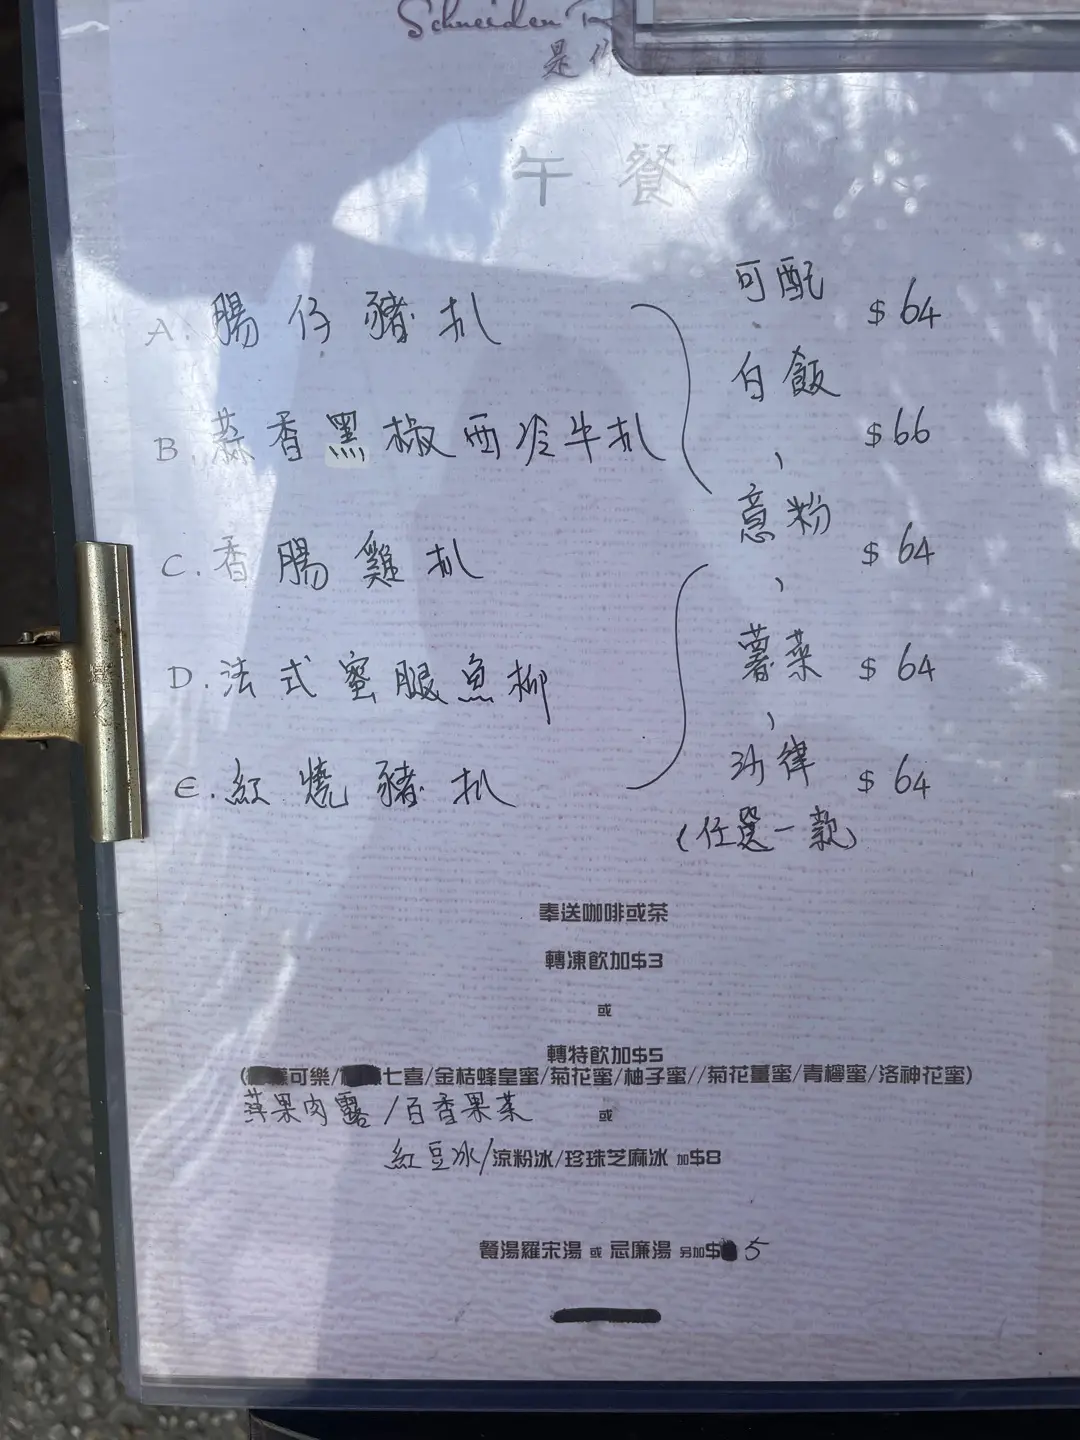 Schneiden
是你
午餐
A. 腸仔豬扒 可配 $64
白飯
B. 蒜香黑椒西冷牛扒 , $66
意粉
C. 香腸雞扒 , $64
薯菜
D. 法式蜜腿魚柳 , $64
沙律
E. 紅燒豬扒 $64
(任選一款)
奉送咖啡或茶
轉凍飲加$3
或
轉特飲加$5
(可樂/七喜/金桔蜂皇蜜/菊花蜜/柚子蜜//菊花薑蜜/青檸蜜/洛神花蜜)
苹果肉露/百香果茶 或
紅豆冰/涼粉冰/珍珠芝麻冰 加$8
餐湯羅宋湯 或 忌廉湯 另加$5